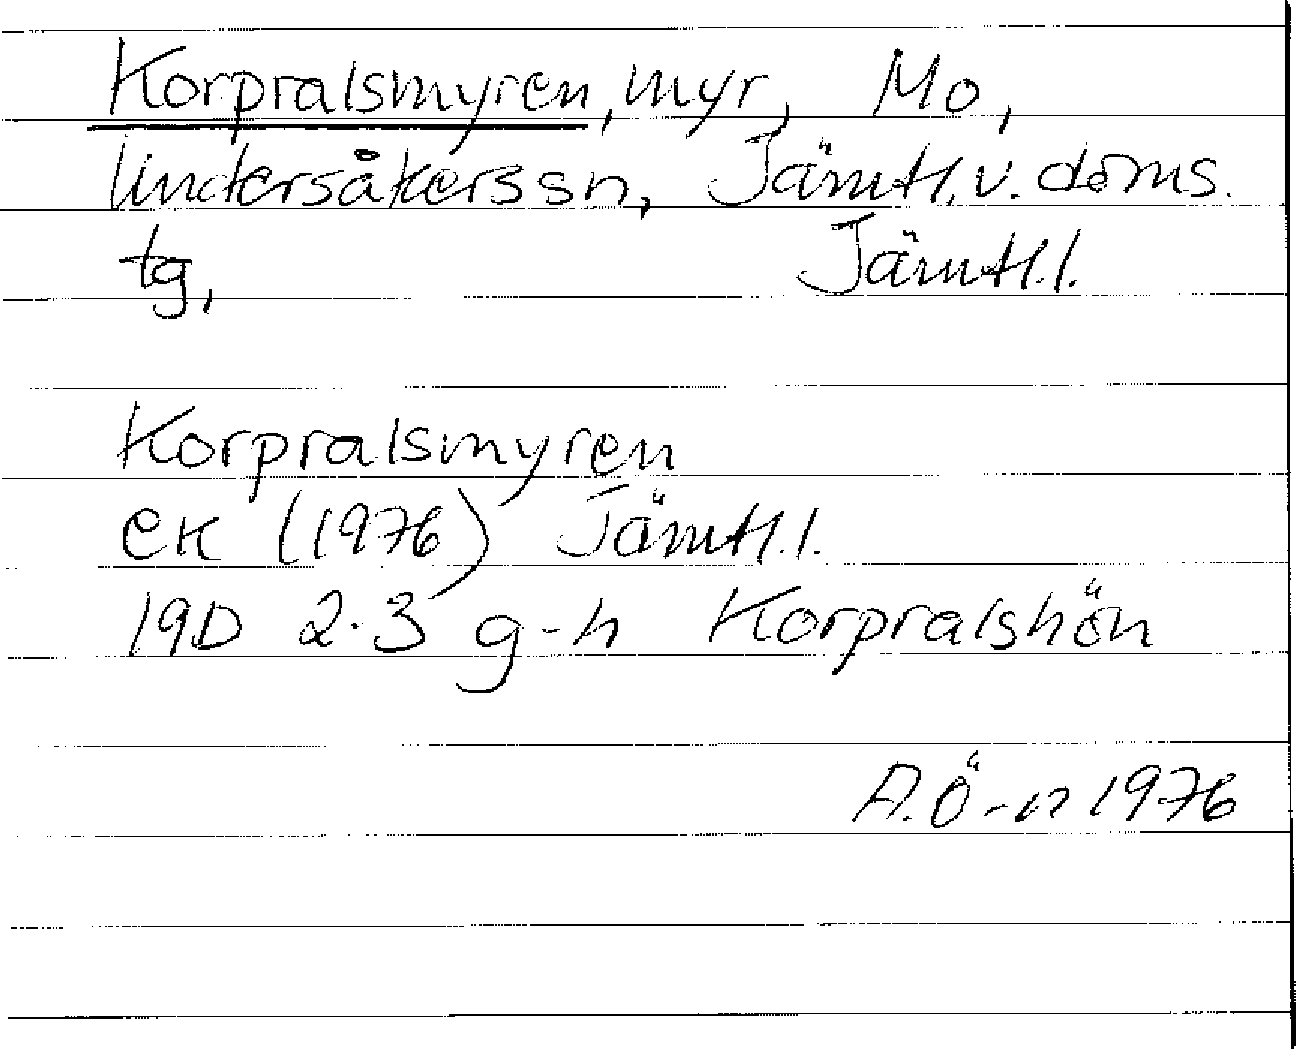 Korpralsmyren, myr, Mo,
Undersåkers sn, Jämtl. v. doms.
tg, Jämtl.l.
Korpralsmyren
ek (1976) Jämtl.l.
19D 2-3 g-h Korpralshön
A.Ö-n 1976